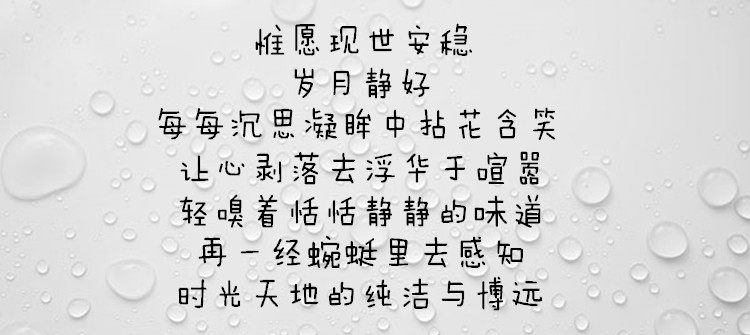 惟愿现世安稳
岁月静好
每每沉思凝眸中拈花含笑
让心剥落去浮华于喧嚣
轻嗅着恬恬静静的味道
再一经蜿蜒里去感知
时光天地的纯洁与博远